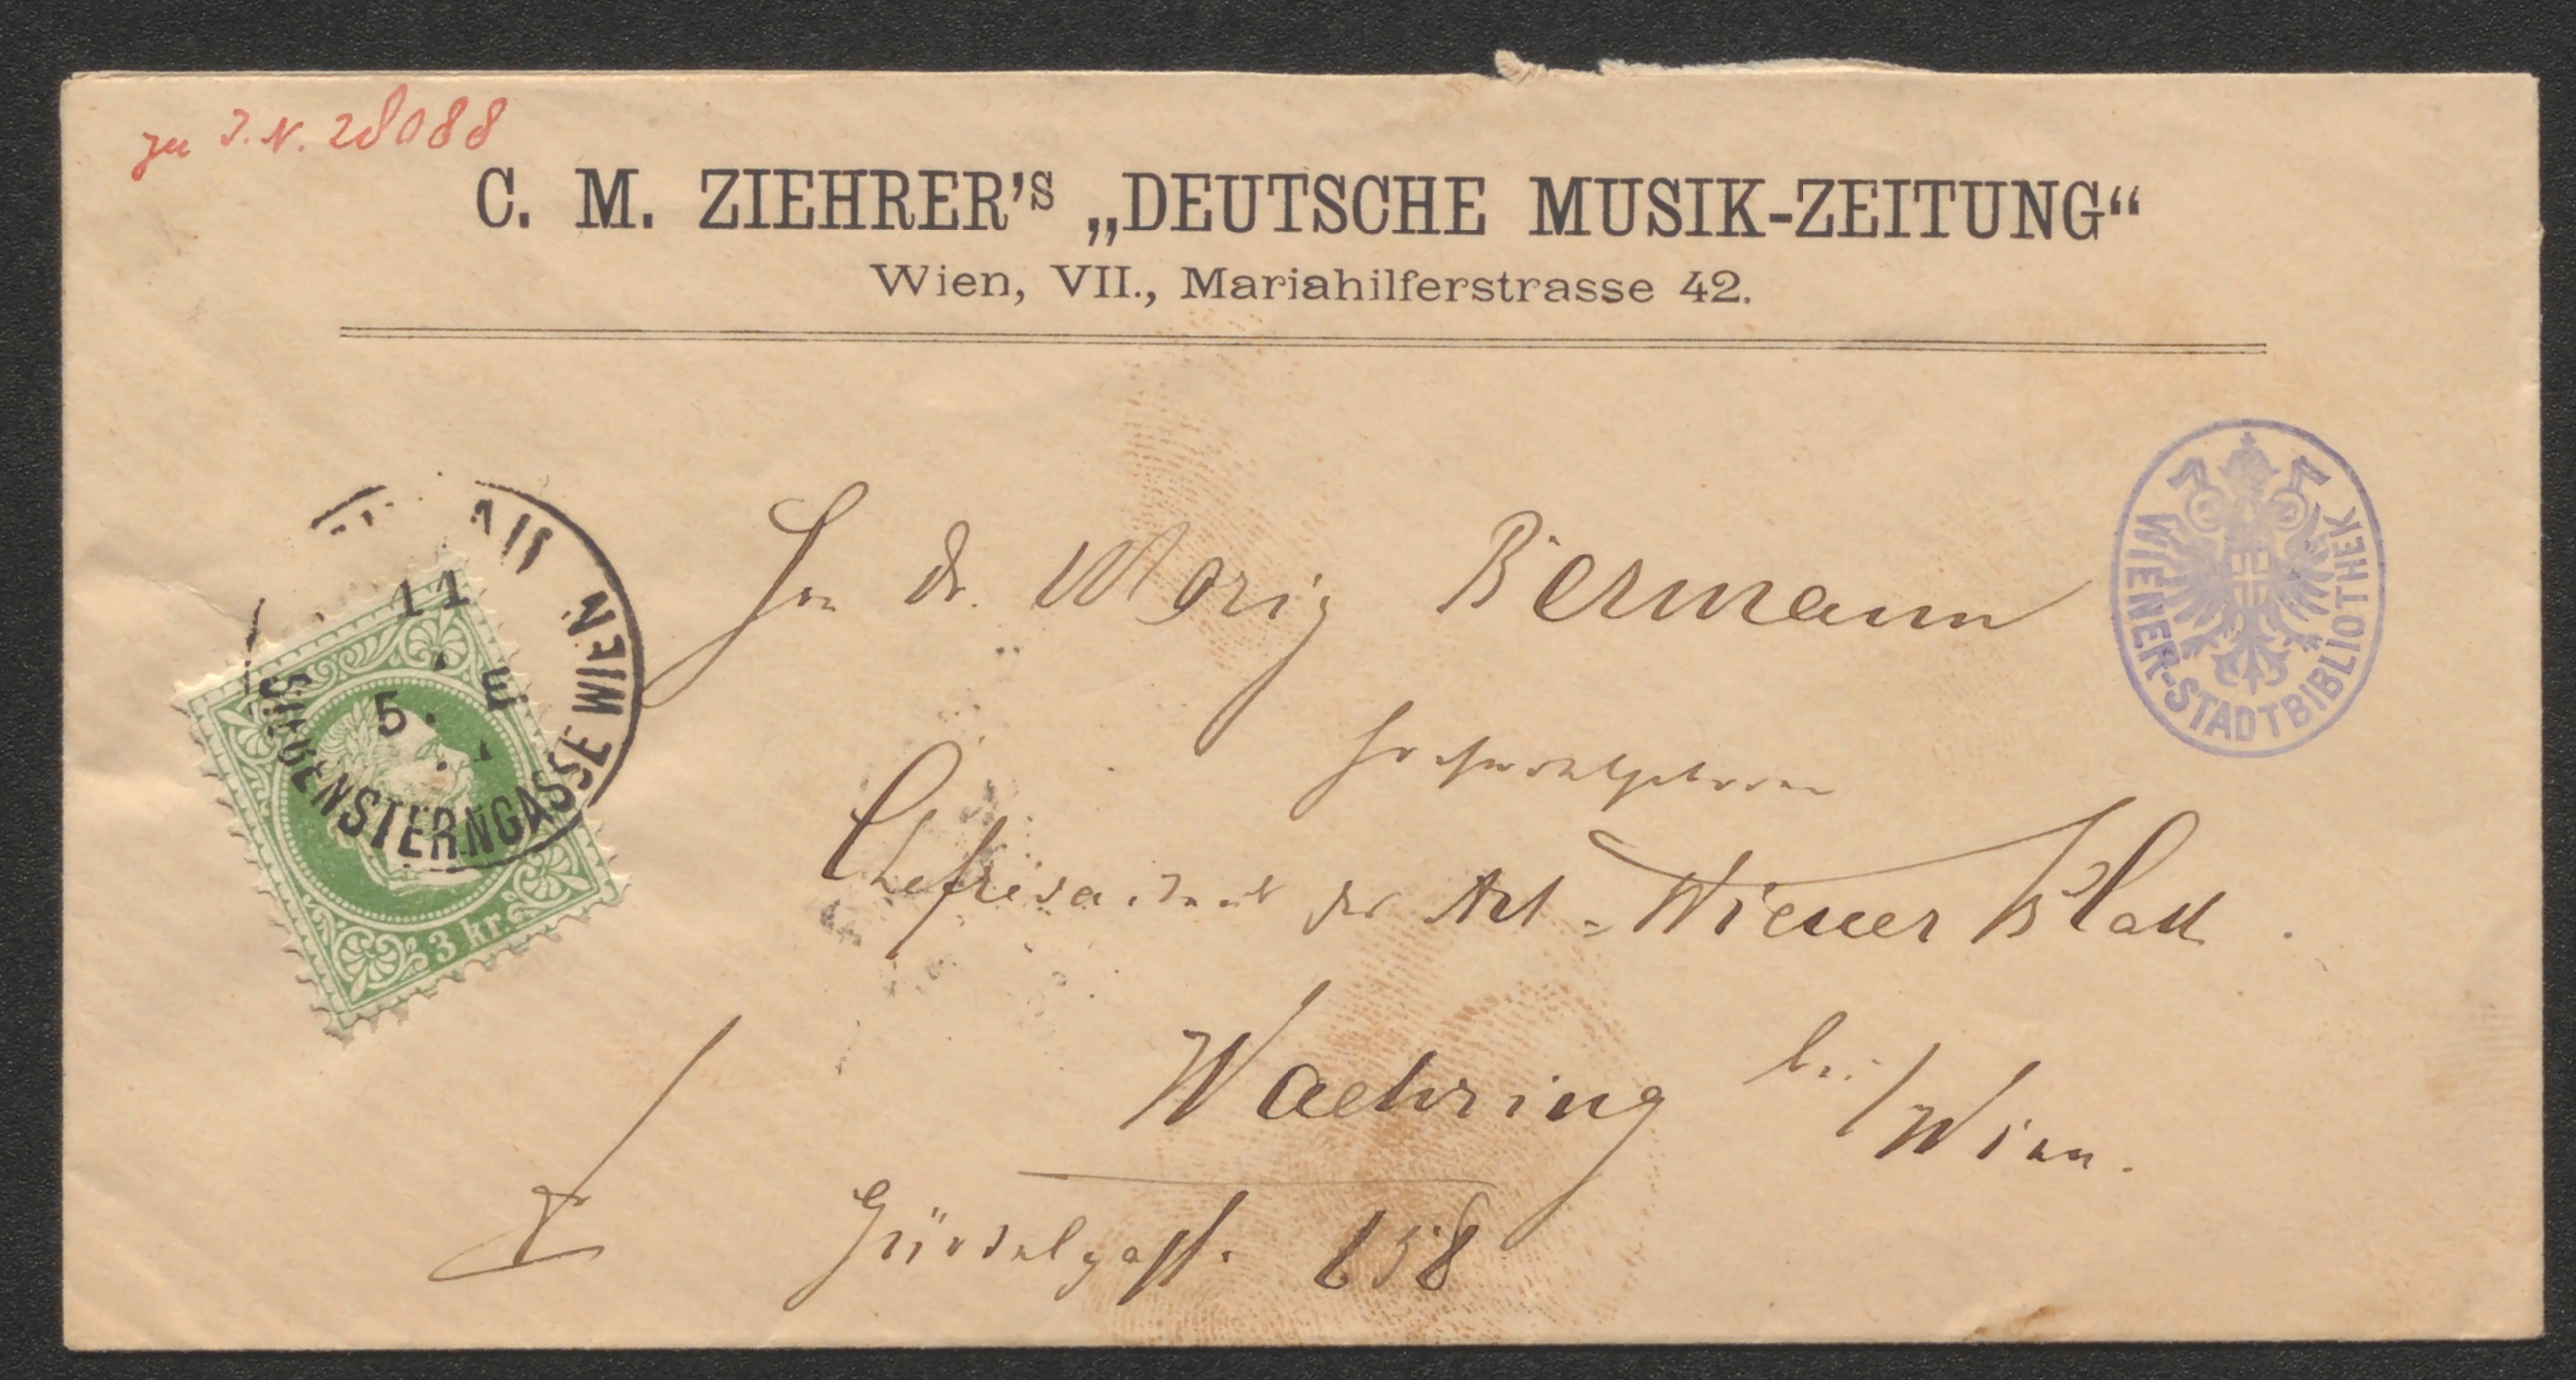 zu I. N. 28088
C. M. ZIEHRER'S „DEUTSCHE MUSIK-ZEITUNG“
Wien, VII., Mariahilferstrasse 42.
WIENER-STADTBIBLIOTHEK
VII WIEN
11
5. E
SIEBENSTERNGASSE WIEN
3 kr.
Dr. Moriz Bermann
Hochwohlgeboren
Chefredacteur der Alt-Wiener Blatt
Waehring bei Wien.
Gürtelgasse 158